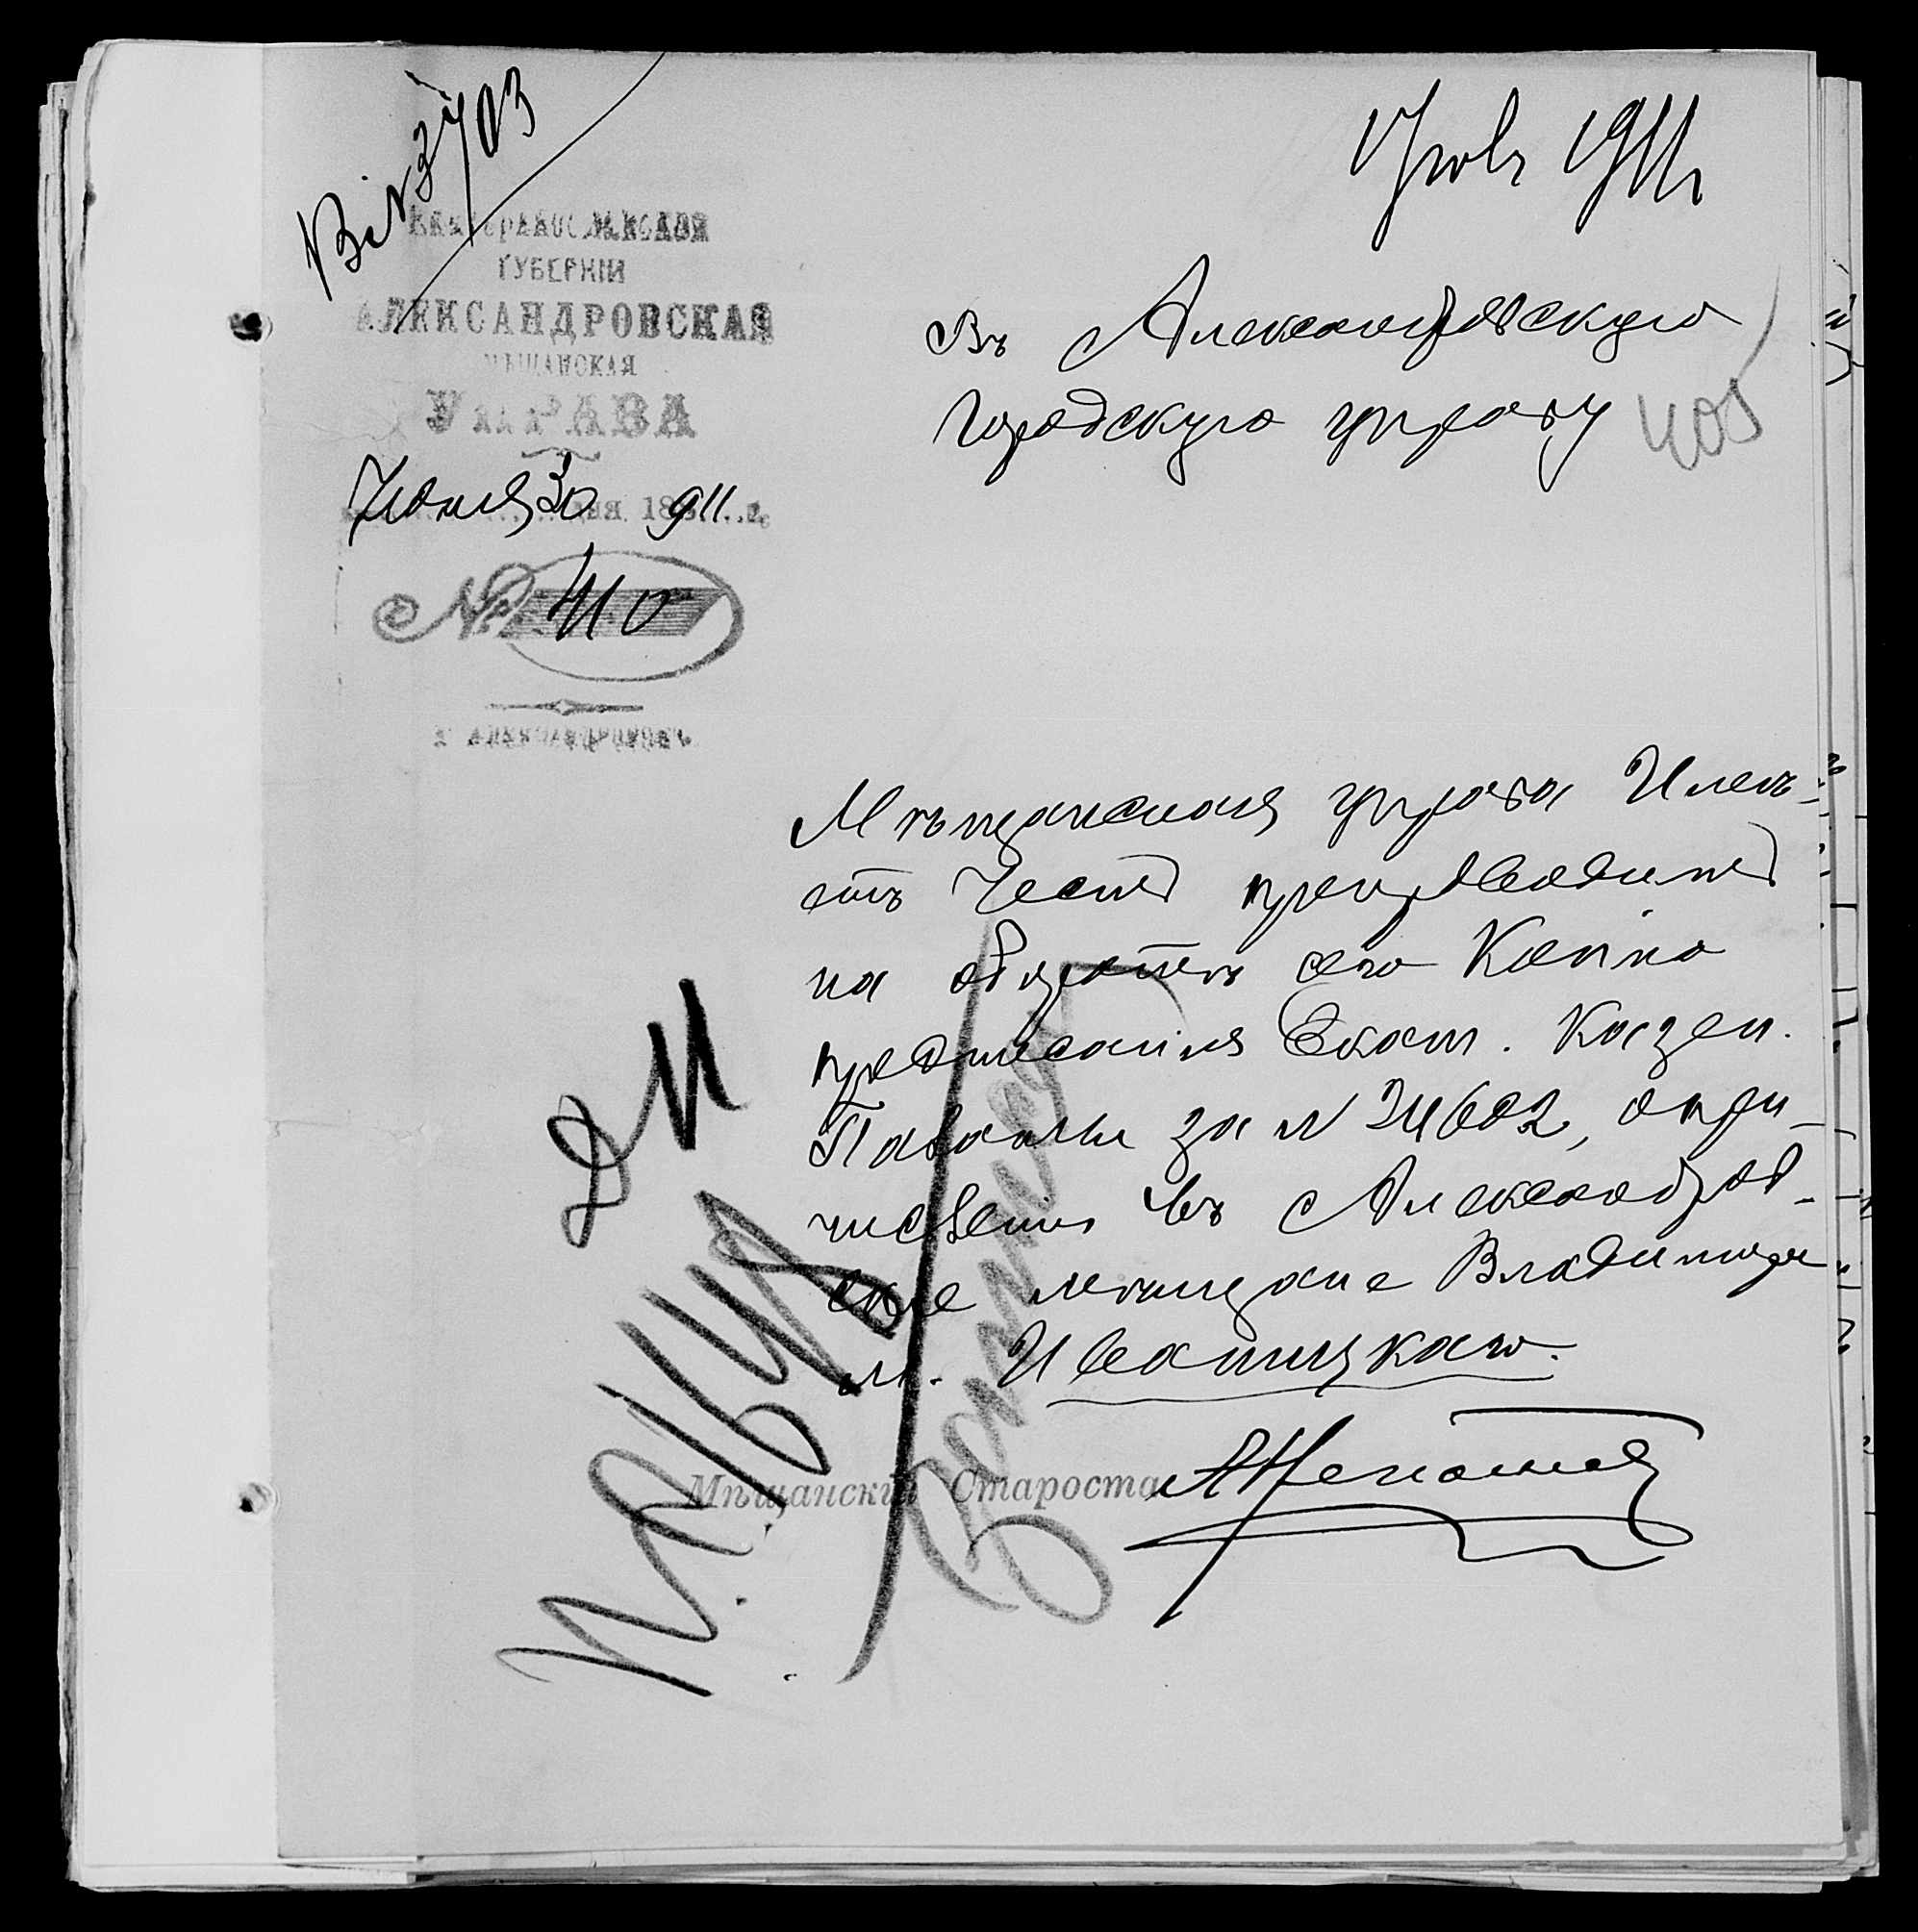 Вх № 3703
ЕКАТЕРИНОСЛАВСКОЙ
ГУБЕРНІИ
АЛЕКСАНДРОВСКАЯ
МѢЩАНСКАЯ
УПРАВА
Іюня 30 дня 1911 г.
№ 410
г. АЛЕКСАНДРОВСКЪ
1911
Въ Александровскую
Городскую управу
405
Мѣщанская управа Имѣ-
етъ Честь препроводить
на оборотѣ сего Копію
предписанія Екат. Казен.
Палаты за № 24602, о при-
численіи въ Александров-
скіе мѣщане Владиміра
Мѣщанскій Староста